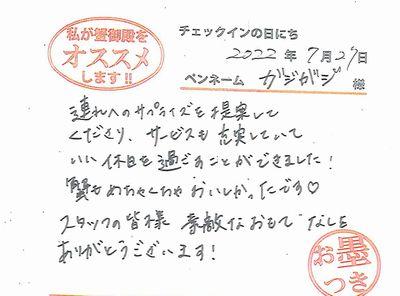 私が蟹御殿を
オススメ
します!!
チェックインの日にち
2022年7月27日
ペンネーム ガジガジ 様
連れへのサプライズを提案して
くださり、サービスも充実していて
いい休日を過ごすことができました!
蟹もめちゃくちゃおいしかったです♡
スタッフの皆様 素敵なおもてなしを
ありがとうございます!
お墨
つき